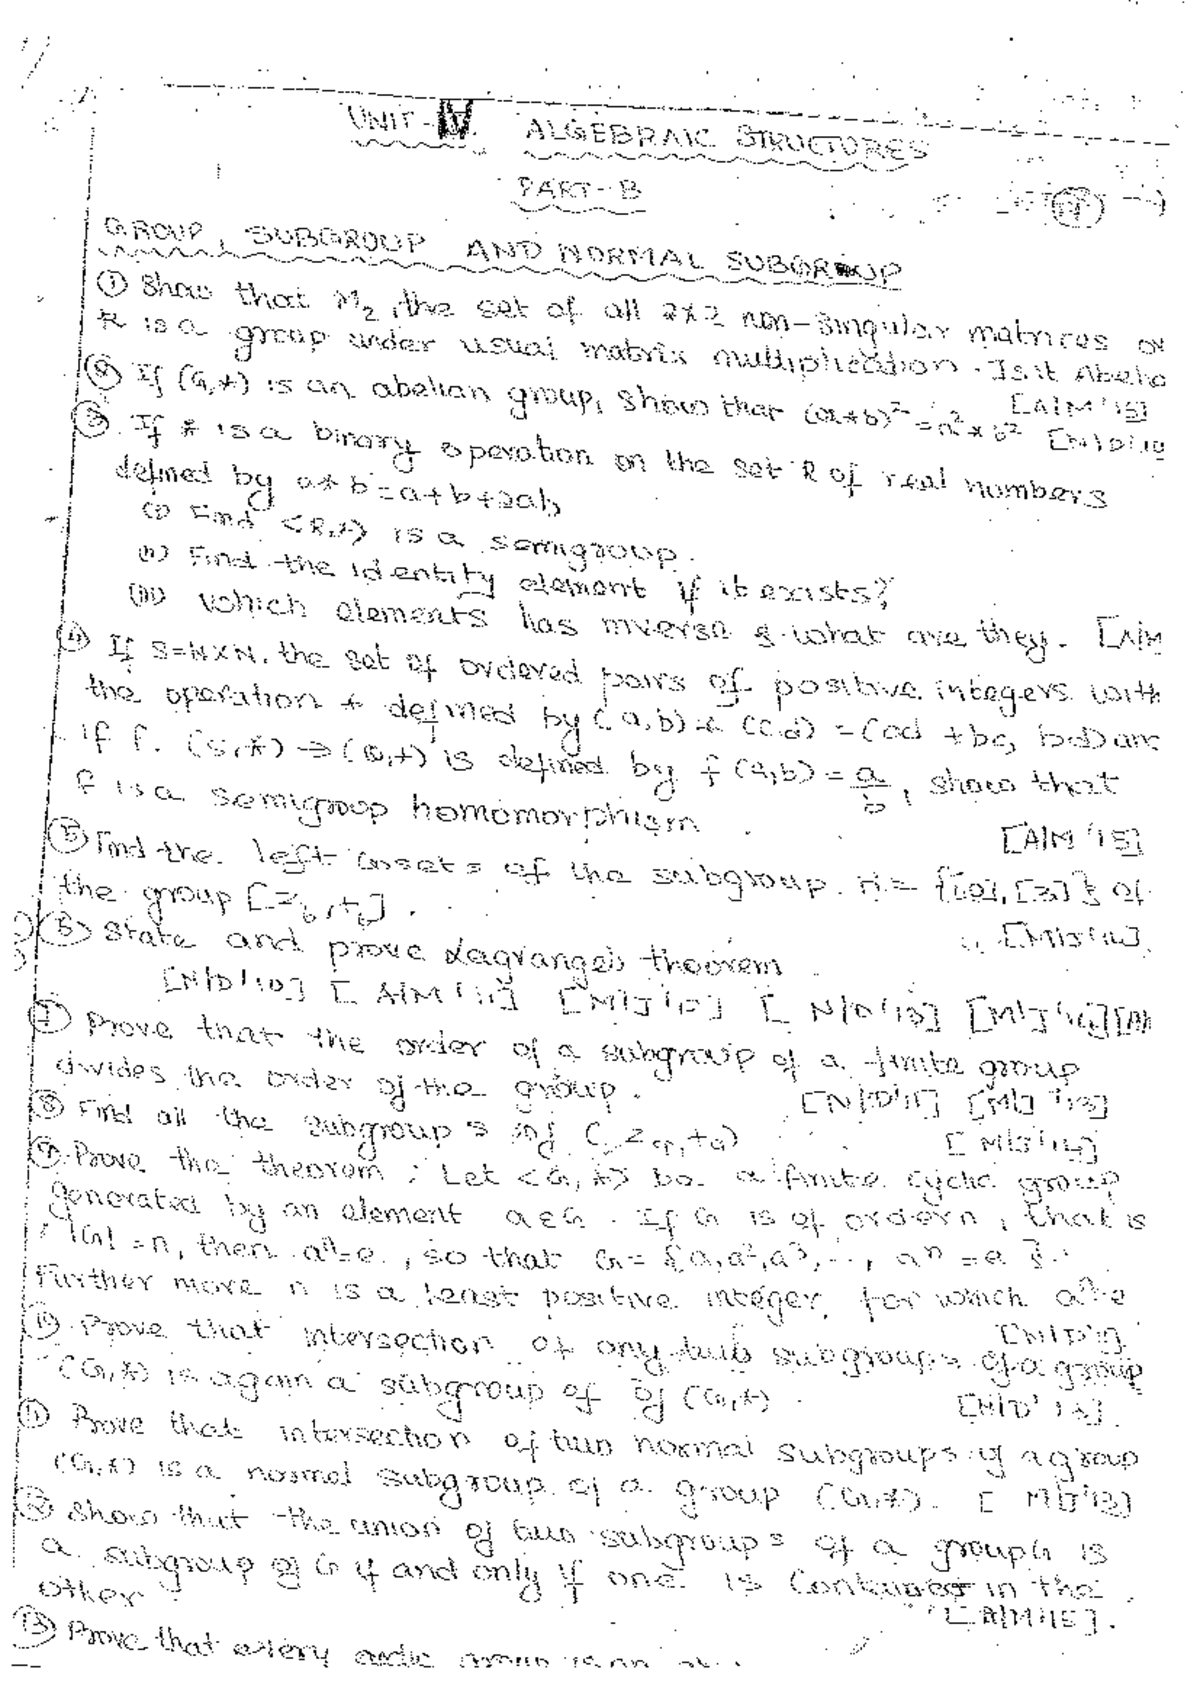 UNIT-IV. ALGEBRAIC STRUCTURES
PART-B
GROUP, SUBGROUP AND NORMAL SUBGROUP
① Show that M₂, the set of all 2x2 non-singular matrices ov
R is a group under usual matrix multiplication. Is it Abelia
[A|M '15]
② If (G,*) is an abelian group, show that (a*b)² = a² * b² [N|D'10
③ If * is a binary operation on the set R of real numbers
defined by a*b=a+b+2ab
(i) Find <R,*> is a semigroup.
(ii) Find the identity element if it exists?
(iii) which elements has inverse & what are they. [A|M
④ If S=N×N, the set of ordered pairs of positive integers with
the operation * defined by (a,b)*(c,d) = (ad + bc, bd) and
if f. (S,*) → (Q,+) is defined by f(a,b) = a/b, show that
f is a semigroup homomorphism [A|M '15]
⑤ Find the left cosets of the subgroup H = {[0],[3]} of
the group [Z₆,+₆]. [M|J'14].
⑥ State and prove Lagrange's theorem
[N|D'10] [A|M '11] [M|J'12] [N|D'13] [M|J'14][A|
⑦ Prove that the order of a subgroup of a finite group
divides the order of the group. [N|D'11] [M|J '13]
⑧ Find all the subgroups of (Z₉,+₉) [M|J'14]
⑨ Prove the theorem : Let <G,*> be a finite cyclic group
generated by an element a∈G. If G is of order n, that is
|G| = n, then aⁿ=e, so that G = {a,a²,a³,..., aⁿ = e}.
Further more n is a least positive integer, for which aⁿ=e
⑩ Prove that intersection of any two subgroups of a group
(G,*) is again a subgroup of of (G,*). [N|D' 13].
⑪ Prove that intersection of two normal subgroups of a group
(G,*) is a normal subgroup of a group (G,*). [M|J'13]
⑫ Show that the union of two subgroups of a group G is
a subgroup of G if and only if one is contained in the
other [A|M'15].
⑬ Prove that every cyclic group is an